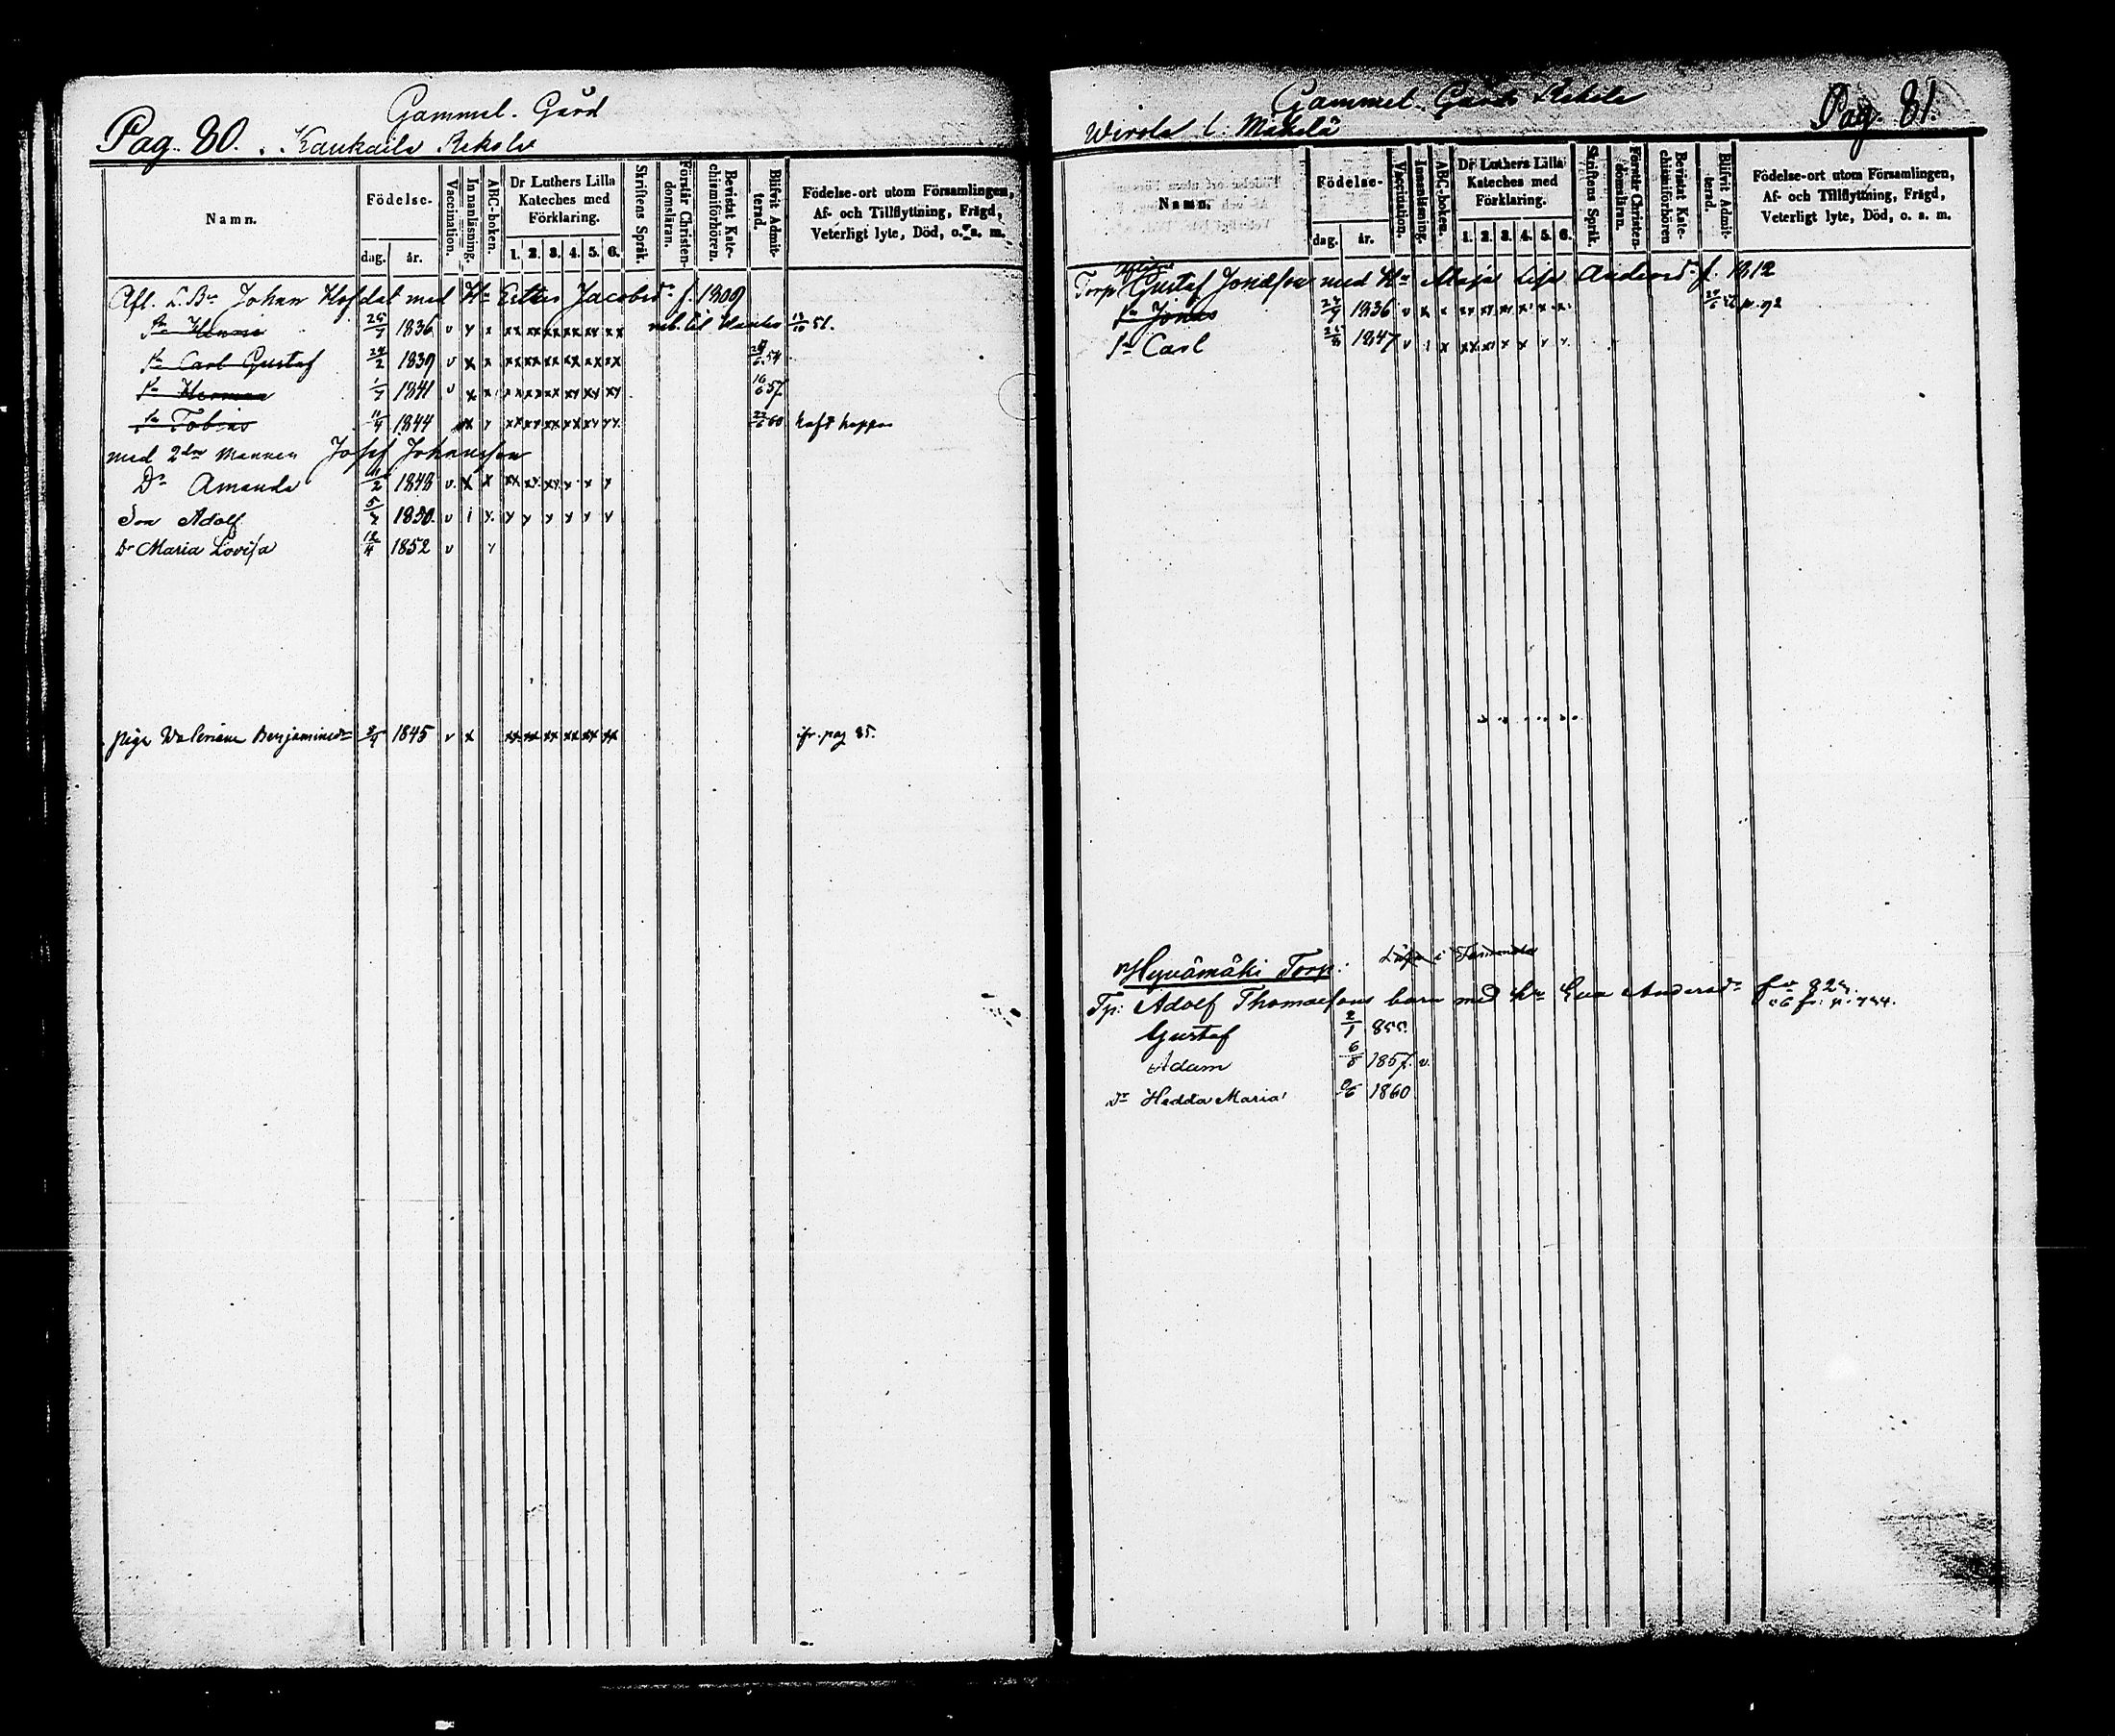 Gammel-Gård
Pag. 80. Kaukaila Rekola
Namn.
Födelse-
dag. år.
Vaccination.
Innanläsning.
ABC-boken.
Dr Luthers Lilla Kateches med Förklaring.
1. 2. 3. 4. 5. 6.
Skriftens Språk.
Förstår Christendomsläran.
Bevistat Katechismiförhören.
Blifvit Admitterad.
Födelse-ort utom Församlingen, Af- och Tillflyttning, Frägd, Veterligt lyte, Död, o. s. m.
Afl. L. Bn Johan med Hu Jacobsdr f. 1809
25/7 1836 v x x xx xx xx xx xx xx 13/10 51.
sn Carl Gustaf 24/2 1839 v x x xx xx xx xx xx xx 54
sn Herman 1/7 1841 v x x xx xx xx xx xx xy 57
sn Tobias 11/4 1844 x y xx xy xx xx xy yy 60
med 2dra mannen Josef Johansson
Dr Amanda 11/2 1848 v x x xx xy xy x x x
Son Adolf 5/7 1850. v i y. y y y y y y
Dr Maria Lovisa 12/4 1852 v y
piga Benjaminsdr 1845 v x xx xx xx xx xx xx ifr. pag 85.
Gammel-Gård Rekola
Wirola l. Mäkelä Pag. 81.
Namn.
Födelse-
dag. år.
Vaccination.
Innanläsning.
ABC-boken.
Dr Luthers Lilla Kateches med Förklaring.
1. 2. 3. 4. 5. 6.
Skriftens Språk.
Förstår Christendomsläran.
Bevistat Katechismiförhören
Blifvit Admitterad.
Födelse-ort utom Församlingen, Af- och Tillflyttning, Frägd, Veterligt lyte, Död, o. s. m.
Torp. Gustaf Jonasson med Hu Maja Lisa Andersdr f. 1812
sn Jonas 1836 v x x xy xy x x x x p. 92
sn Carl 1847 v i x xx xx x x y y
Hyvämäki Torp:
Tp: Adolf Thomassons barn med hu Eva Andersdr
Gustaf 2/1 855.
Adam 6/8 1857. v.
Dr Hedda Maria 1860